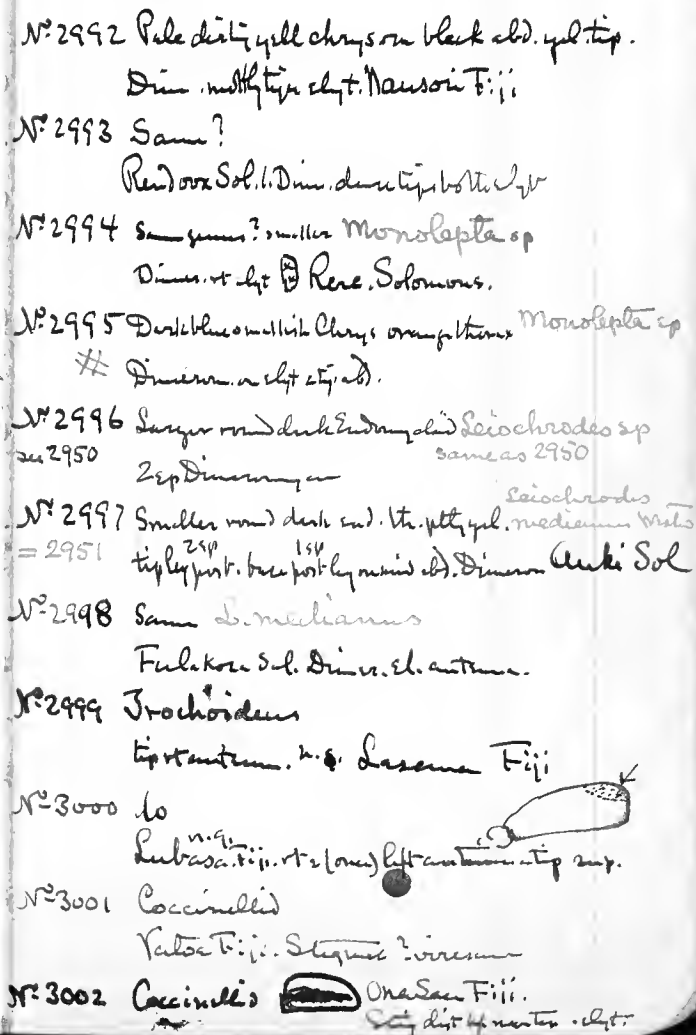 No 2992 Pale dirty yell chrysom black abd. yel. tip.
Dim. elyt. Nausori Fiji
No 2993 Same?
Rendova Sol. I. Dim.
No 2994 Same genus? smaller Monolepta sp
Dimer. rt elyt Rere. Solomons.
No 2995 Dark blue smallish Chrys orange thorax Monolepta sp
# Dimerom. on elyt & tip abd.
No 2996 Larger round dark Endomychid Leiochrodes sp
see 2950 same as 2950
2 sp Dimeromyces
No 2997 Smaller round dark end. Leiochrodes
medianus
= 2951 tip leg post. 2 sp base post leg 1 sp abd. Dimerom Auki Sol
No 2998 Same L. medianus
Fulakora Sol. Dimer. El. antenna.
No 2999 Trochoideus
tip rt antenn. n.g. Lasema Fiji
No 3000 do
Lubasa. Fiji. n.g. rt & (one) left antenna tip sup.
No 3001 Coccinellid
Vatoa Fiji. Stigmat ? virescens
No 3002 Coccinellid Fiji.
dist elyt.